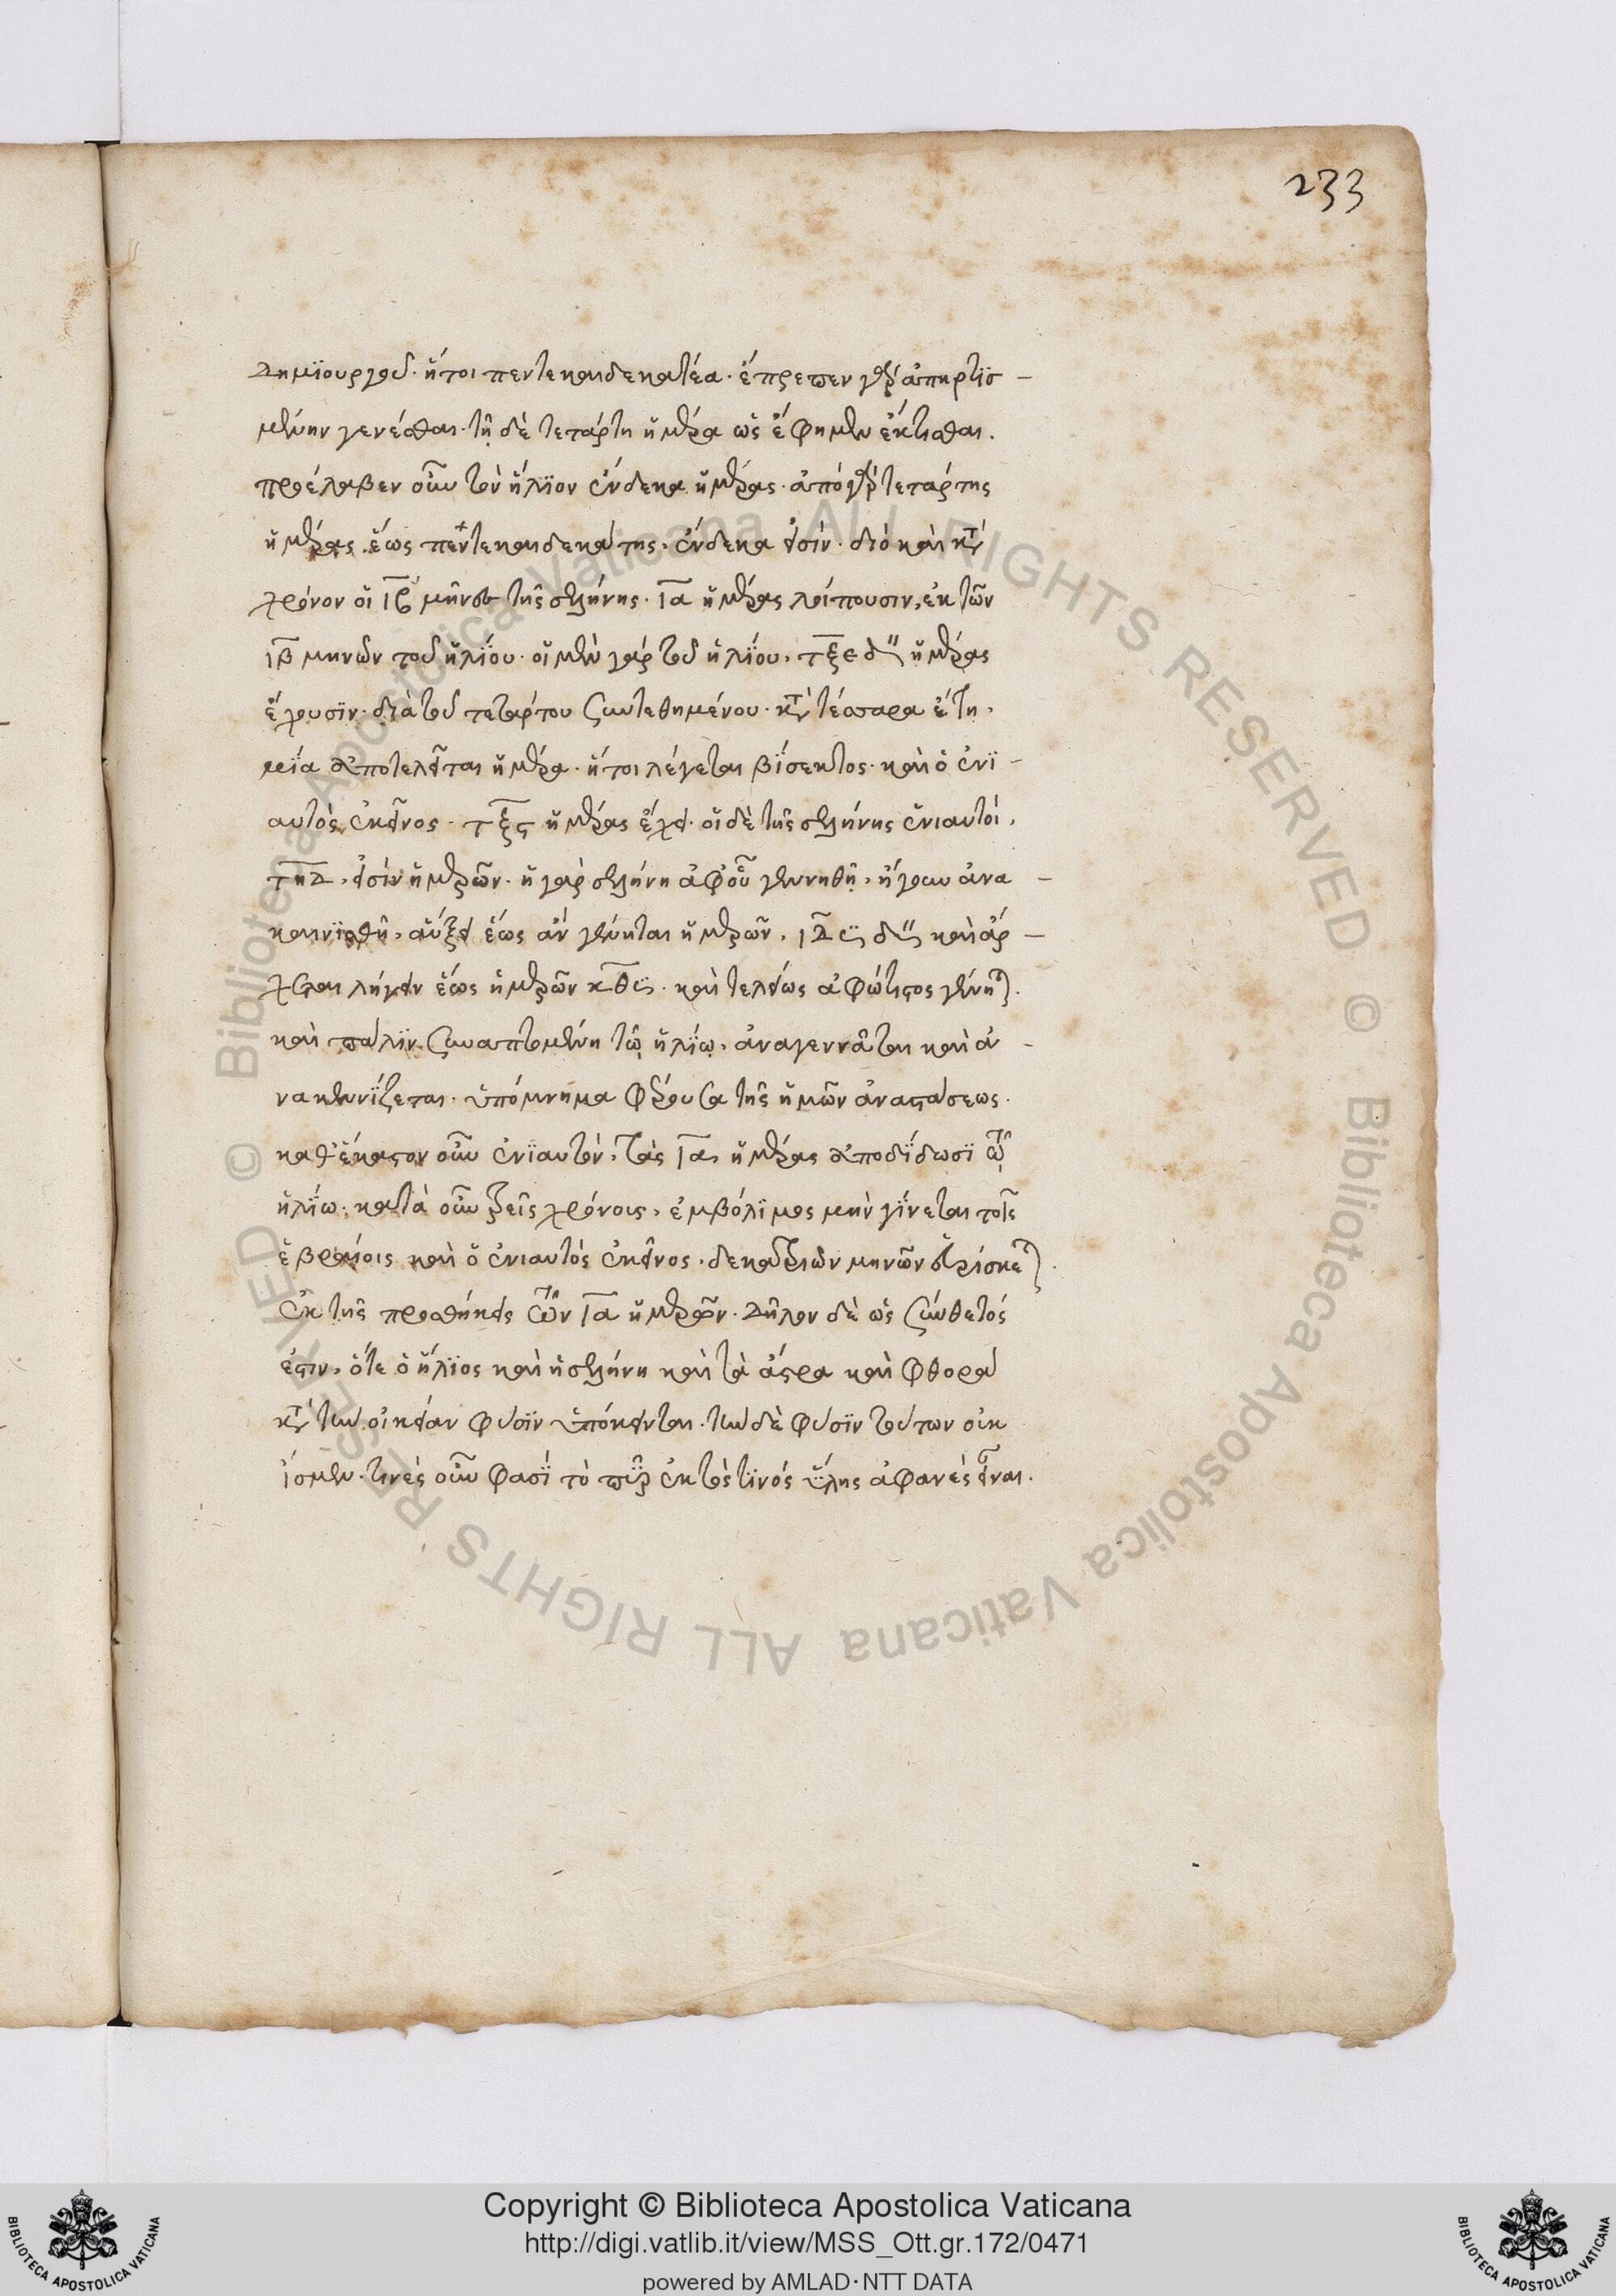 233
δημϊουργοῦ· ἤτοι πεντεκαιδεκαταία· ἔπρεπεν γὰρ ἀπηρτϊσ-
μένην γενέσθαι· τῇ δὲ τετάρτῃ ἡμέρα ὡς ἔφημεν ἐκτίσθαι.
προέλαβεν οὖν τὸν ἥλϊον ἕνδεκα ἡμέρας· ἀπὸ γὰρ τετάρτης
ἡμέρας ἕως πεντεκαιδεκάτης, ἕνδεκα εἰσίν· διὸ καὶ κατὰ
χρόνον οἱ ιβ μῆνες τῆς σελήνης· ια ἡμέρας λείπουσιν, ἐκ τῶν
ιβ μηνῶν τοῦ ἡλΐου· οἱ μὲν γάρ τοῦ ἡλΐου, τξε δ'' ἡμέρας
ἔχουσϊν· διὰ τοῦ τετάρτου συντεθημένου· κατὰ τέσσαρα ἔτη,
μΐα ἀποτελεῖται ἡμέρα· ἤτοι λέγεται βΐσεκτος· καὶ ὁ ἐνϊ-
αυτὸς ἐκεῖνος· τξς ἡμέρας ἔχει· οἱ δὲ τῆς σελήνης ἐνιαυτοί,
τηδ, εἰσὶν ἡμερῶν· ἡ γὰρ σελήνη ἀφοῦ γεννηθῇ, ἤγουν ἀνα-
καινϊσθῇ, αὔξει ἕως ἂν γένηται ἡμερῶν, ιδ δ'' καὶ ἄρ-
χεται λήγειν ἕως ἡμερῶν κθ· καὶ τελείως ἀφώτιστος γένηται.
καὶ πάλϊν συναπτομένη τῷ ἡλΐῳ, ἀναγεννᾶται καὶ ἀ-
νακενΐζεται· ὑπόμνημα φέρουσα τῆς ἡμῶν ἀναστάσεως.
καθ' ἕκαστον οὖν ἐνϊαυτόν, τὰς ια, ἡμέρας ἀποδΐδωσϊ τῷ
ἡλΐω· κατὰ οὖν τρεῖς χρόνοις, ἐμβόλϊμος μὴν γΐνεται τοῖς
ἑβραίοις καὶ ὁ ἐνιαυτὸς ἐκεῖνος, δεκατριῶν μηνῶν εὑρίσκεται.
ἐκ τῆς προσθήκης τῶν ια ἡμερῶν· δῆλον δὲ ὡς σύνθετός
ἐστιν, ὅτε ὁ ἥλϊος καὶ ἡ σελήνη καὶ τὰ ἄστρα καὶ φθορᾷ
κατὰ τὴν οἰκείαν φύσϊν ὑπόκεινται· τὴν δὲ φύσϊν τούτων οὐκ
ἴσμεν· τινὲς οὖν φασϊ τὸ πῦρ ἐκτός τϊνός ὕλης ἀφανὲς εἶναι.
Copyright © Biblioteca Apostolica Vaticana
http://digi.vatlib.it/view/MSS_Ott.gr.172/0471
powered by AMLAD·NTT DATA